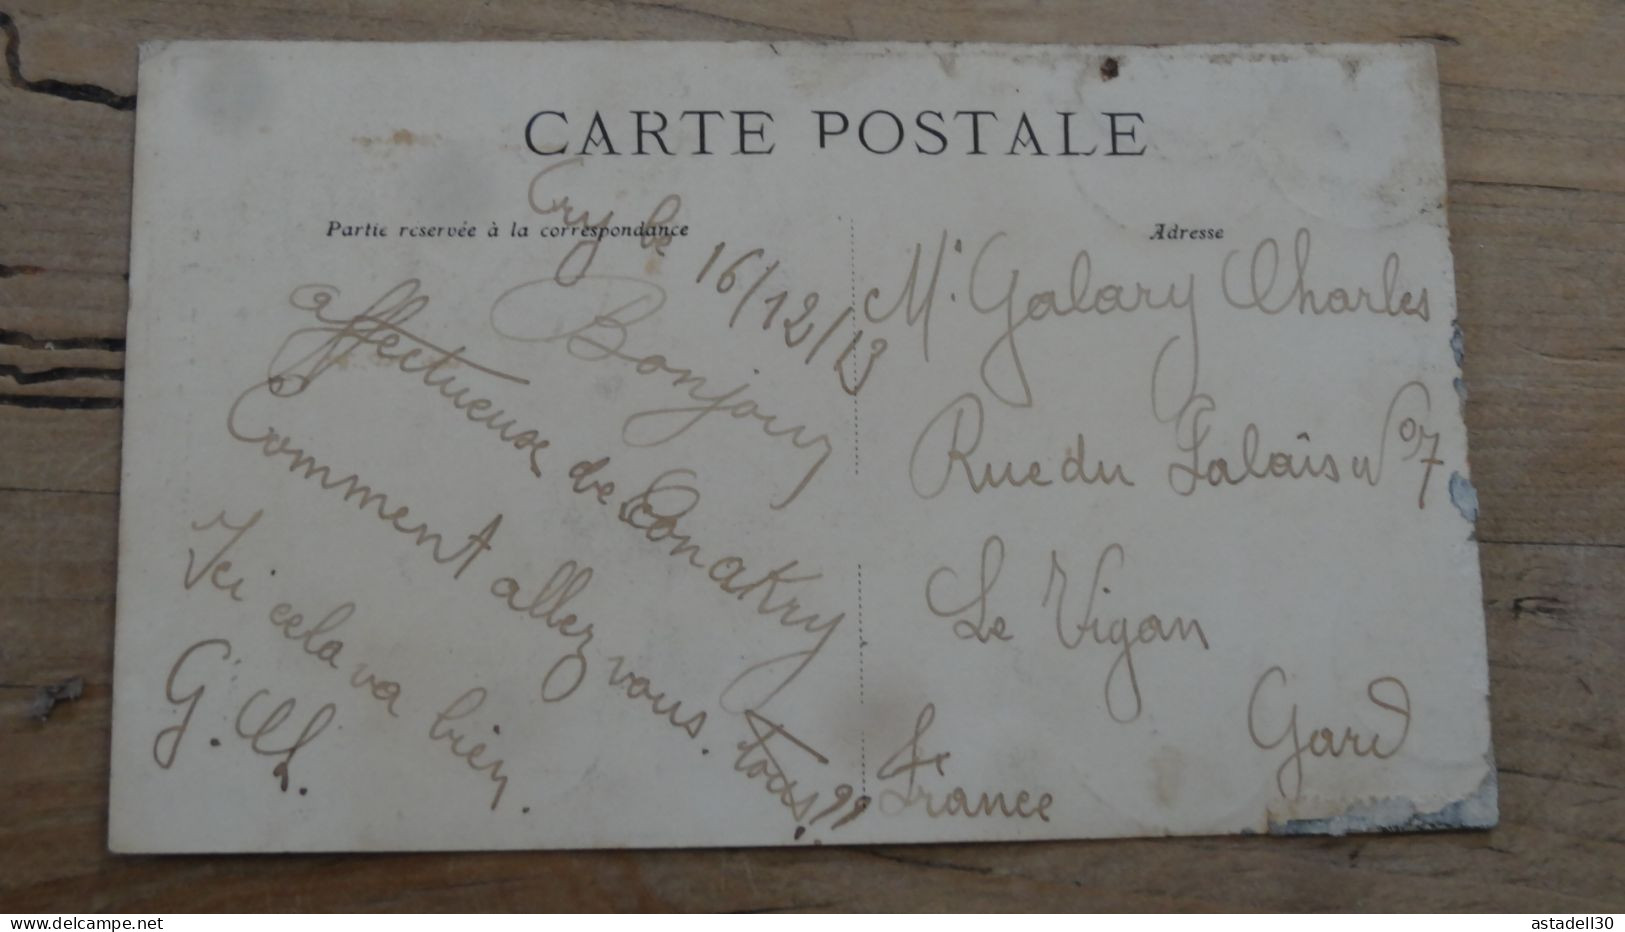 CARTE POSTALE
Partie réservée à la correspondance
Adresse
Cry be 16/12/13
Bonjour
affectueuse de Conakry
Comment allez vous. tous,
Ici cela va bien.
G. Ch.
Mr. Galary Charles
Rue du Palais No 7
Le Vigan
Gard
France
astadell30